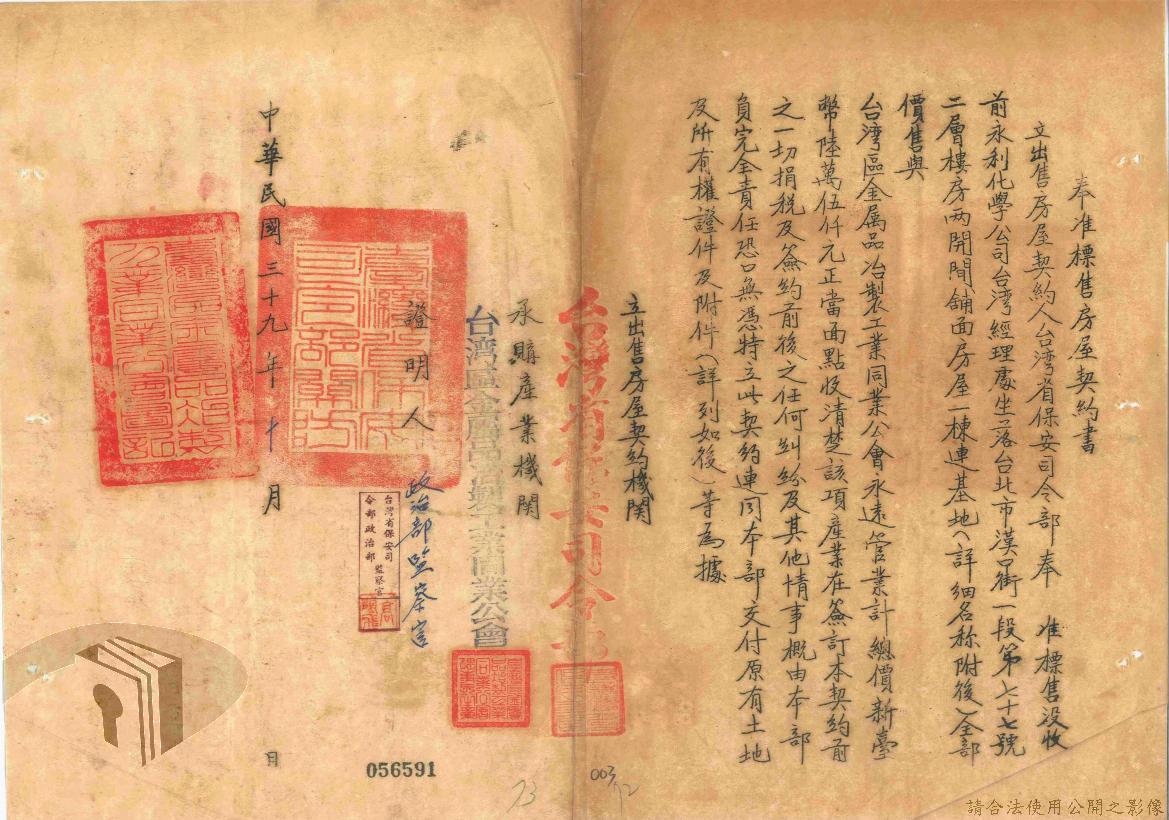 奉准標售房屋契約書
立出售房屋契約人台湾省保安司令部奉　准標售没收
前永利化學公司台湾經理處坐落台北市漢口街一段第七十七號
二層樓房两開間舖面房屋一棟連基地(詳細名称附後)全部
價售與
台湾區金属品冶製工業同業公會永遠管業計　總價新臺
幣陸萬伍仟元正當面點收清楚該項產業在簽訂本契約前
之一切捐税及簽約前後之任何糾紛及其他情事概由本部
負完全責任恐口無憑特立此契約連同本部交付原有土地
及所有權證件及附件(詳列如後)等為據
立出售房屋契約機関
台灣省保安司令部
承購產業機関
台湾區金屬品冶製工業同業公會
證明人
政治部監察官
台灣省保安司
令部政治部
監察官
中華民國三十九年十月
日
056591
73
003
72
請合法使用公開之影像